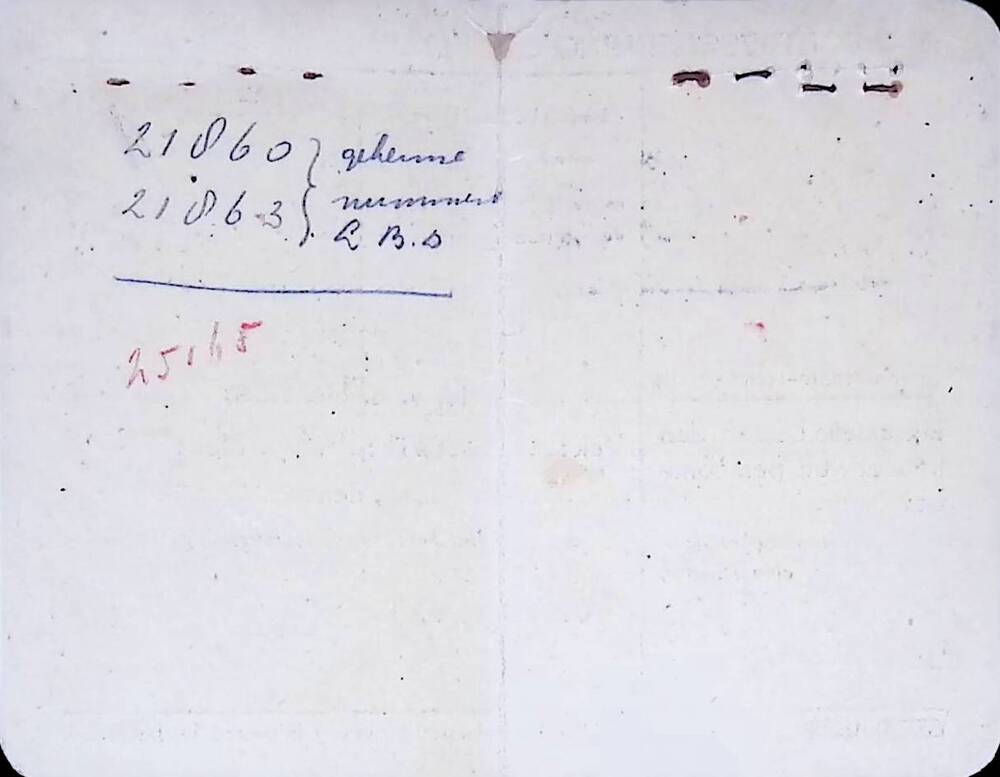 21860 } geheime
21863 } nummers
L B.S
25165